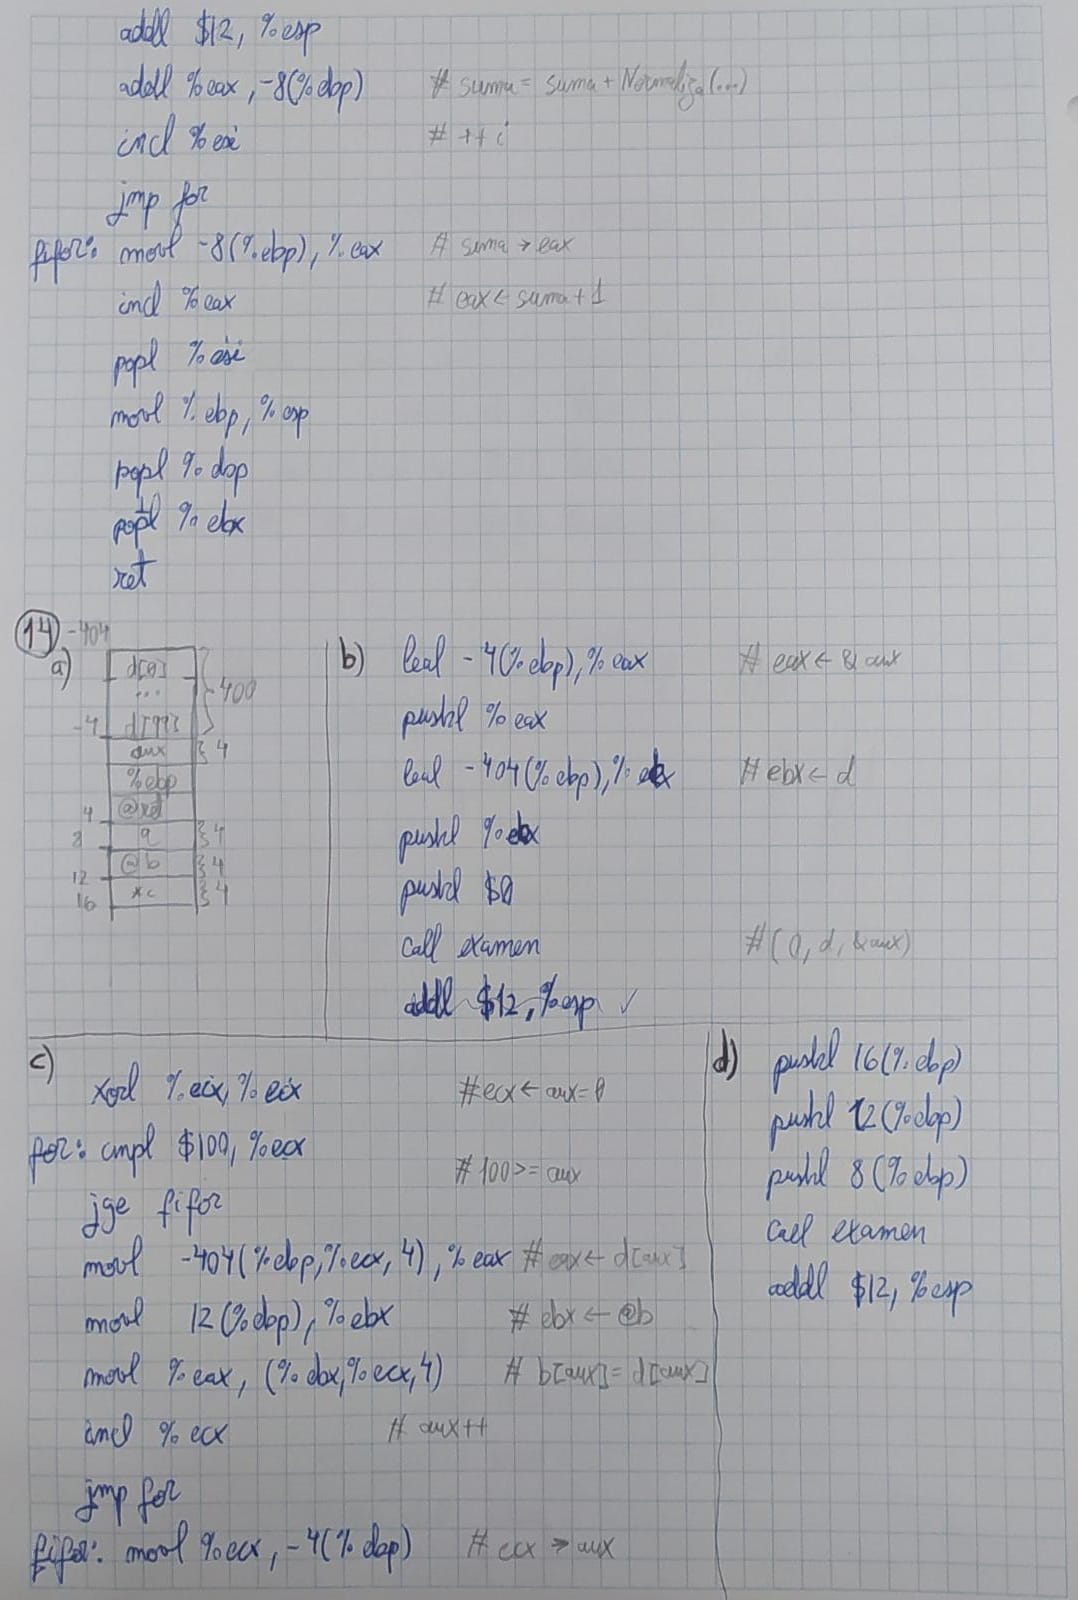 addl $12, %esp
addl %eax, -8(%ebp) # suma = suma + Normaliza(...)
incl %esi # ++i
jmp for
fifor: movl -8(%ebp), %eax # suma → eax
incl %eax # eax ← suma + 1
popl %esi
movl %ebp, %esp
popl %ebp
popl %ebx
ret
14
a)
-404
d[0]
...
400
-4 d[99]
aux 4
%ebp
4 @ret
8 a 4
12 @b 4
16 *c 4
b) leal -4(%ebp), %eax # eax ← & aux
pushl %eax
leal -404(%ebp), %ebx # ebx ← d
pushl %ebx
pushl $0
call examen #(0, d, &aux)
addl $12, %esp ✓
c)
xorl %ecx, %ecx #ecx ← aux=0
for: cmpl $100, %ecx
# 100>= aux
jge fifor
movl -404(%ebp,%ecx, 4), %eax # eax ← d[aux]
movl 12(%ebp), %ebx # ebx ← @b
movl %eax, (%ebx,%ecx,4) # b[aux] = d[aux]
incl %ecx # aux++
jmp for
fifor: movl %ecx, -4(%ebp) # ecx → aux
d) pushl 16(%ebp)
pushl 12(%ebp)
pushl 8(%ebp)
call examen
addl $12, %esp